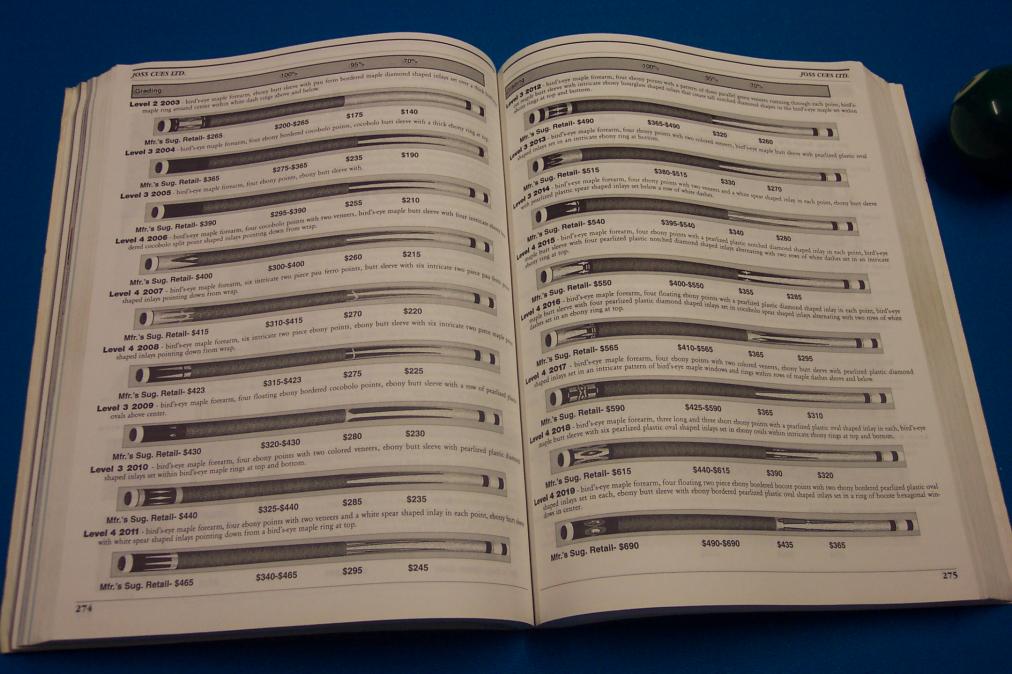 JOSS CUES LTD.
Grading 100% 95% 70%
Level 2 2003 - bird's-eye maple forearm, ebony butt sleeve with pau ferro bordered maple diamond shaped inlays set over a thick
maple ring around center within white dash rings above and below.
Mfr.'s Sug. Retail- $265 $200-$265 $175 $140
Level 3 2004 - bird's-eye maple forearm, four ebony bordered cocobolo points, cocobolo butt sleeve with a thick ebony ring at top.
Mfr.'s Sug. Retail- $365 $275-$365 $235 $190
Level 3 2005 - bird's-eye maple forearm, four ebony points, ebony butt sleeve with.
Mfr.'s Sug. Retail- $390 $295-$390 $255 $210
Level 4 2006 - bird's-eye maple forearm, four cocobolo points with two veneers, bird's-eye maple butt sleeve with four intricate
dered cocobolo split point shaped inlays pointing down from wrap.
Mfr.'s Sug. Retail- $400 $300-$400 $260 $215
Level 4 2007 - bird's-eye maple forearm, six intricate two piece pau ferro points, butt sleeve with six intricate two piece pau
shaped inlays pointing down from wrap.
Mfr.'s Sug. Retail- $415 $310-$415 $270 $220
Level 4 2008 - bird's-eye maple forearm, six intricate two piece ebony points, ebony butt sleeve with six intricate two piece maple
shaped inlays pointing down from wrap.
Mfr.'s Sug. Retail- $423 $315-$423 $275 $225
Level 3 2009 - bird's-eye maple forearm, four floating ebony bordered cocobolo points, ebony butt sleeve with a row of pearlized
ovals above center.
Mfr.'s Sug. Retail- $430 $320-$430 $280 $230
Level 3 2010 - bird's-eye maple forearm, four ebony points with two colored veneers, ebony butt sleeve with pearlized plastic
shaped inlays set within bird's-eye maple rings at top and bottom.
Mfr.'s Sug. Retail- $440 $325-$440 $285 $235
Level 4 2011 - bird's-eye maple forearm, four ebony points with two veneers and a white spear shaped inlay in each point, ebony butt
with white spear shaped inlays pointing down from a bird's-eye maple ring at top.
Mfr.'s Sug. Retail- $465 $340-$465 $295 $245
274
JOSS CUES LTD.
100% 95% 70%
Level 3 2012 - bird's-eye maple forearm, four ebony points with a pattern of three parallel veneers running through each point, bird's-
eye maple butt sleeve with intricate ebony hourglass shaped inlays that create tall notched diamond shapes in the bird's-eye maple set within
rings at top and bottom.
Mfr.'s Sug. Retail- $490 $365-$490 $320 $260
Level 3 2013 - bird's-eye maple forearm, four ebony points with two colored veneers, bird's-eye maple butt sleeve with pearlized plastic oval
shaped inlays set in an intricate ebony ring at bottom.
Mfr.'s Sug. Retail- $515 $380-$515 $330 $270
Level 3 2014 - bird's-eye maple forearm, four ebony points with two veneers and a white spear shaped inlay in each point, ebony butt sleeve
with pearlized plastic spear shaped inlays set below a row of white dashes.
Mfr.'s Sug. Retail- $540 $395-$540 $340 $280
Level 4 2015 - bird's-eye maple forearm, four ebony points with a pearlized plastic notched diamond shaped inlay in each point, bird's-eye
maple butt sleeve with four pearlized plastic notched diamond shaped inlays alternating with two rows of white dashes set in an intricate
ebony ring at top.
Mfr.'s Sug. Retail- $550 $400-$550 $355 $285
Level 4 2016 - bird's-eye maple forearm, four floating ebony points with a pearlized plastic diamond shaped inlay in each point, bird's-eye
maple butt sleeve with four pearlized plastic diamond shaped inlays set in cocobolo spear shaped inlays alternating with two rows of white
dashes set in an ebony ring at top.
Mfr.'s Sug. Retail- $565 $410-$565 $365 $295
Level 4 2017 - bird's-eye maple forearm, four ebony points with two colored veneers, ebony butt sleeve with pearlized plastic diamond
shaped inlays set in an intricate pattern of bird's-eye maple windows and rings within rows of maple dashes above and below.
Mfr.'s Sug. Retail- $590 $425-$590 $365 $310
Level 4 2018 - bird's-eye maple forearm, three long and three short ebony points with a pearlized plastic oval shaped inlay in each, bird's-eye
maple butt sleeve with six pearlized plastic oval shaped inlays set in ebony ovals within intricate ebony rings at top and bottom.
Mfr.'s Sug. Retail- $615 $440-$615 $390 $320
Level 4 2019 - bird's-eye maple forearm, four floating two piece ebony bordered bocote points with two ebony bordered pearlized plastic oval
shaped inlays set in each, ebony butt sleeve with ebony bordered pearlized plastic oval shaped inlays set in a ring of bocote hexagonal win-
dows in center.
Mfr.'s Sug. Retail- $690 $490-$690 $435 $365
275